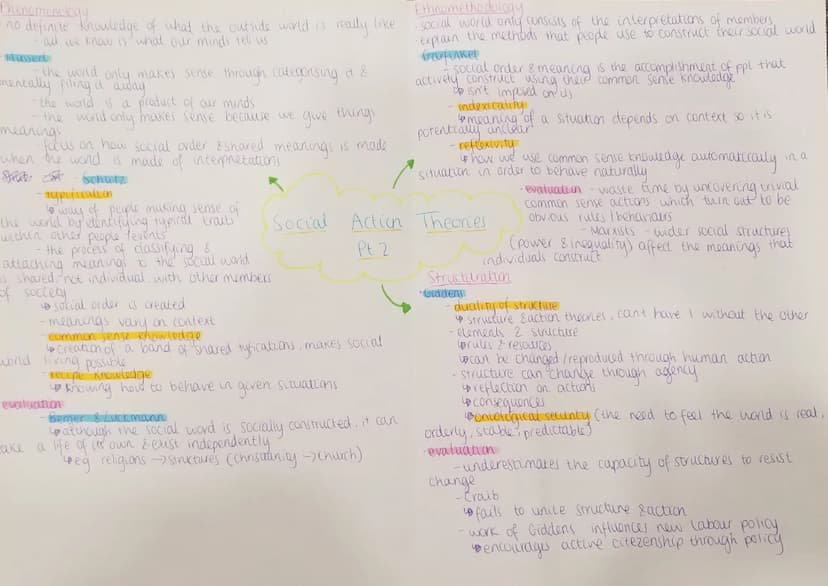 Phenomonology
-no definite knowledge of what the outside world is really like
-all we know is what our minds tell us
Husserl
-the world only makes sense through categorising it &
mentally filing it away
-the world is a product of our minds
-the world only makes sense because we give things
meanings
-focus on how social order & shared meanings is made
when the world is made of interpretations
Schutz
-typification
↳way of people making sense of
the world by identifying typical traits
within other people/events
-the process of classifying &
attaching meaning to the social world
is shared, not individual, with other members
of society
↳social order is created
-meanings vary on context
common sense knowledge
↳creation of a band of shared tyfications, makes social
world living possible
-recipe knowledge
↳knowing how to behave in given situations
evaluation
-Berger & Luckmann
↳although the social word is socially constructed, it can
take a life of its own & exist independently
↳eg religions →structures (christianity →church)
Social Action Theories
Pt.2
Ethnomethodology
-social world only consists of the interpretations of members
-explain the methods that people use to construct their social world
Garfinkel
-social order & meaning is the accomplishment of ppl that
actively construct using their common sense knowledge
↳isn't imposed on us
-indexicality
↳meaning of a situation depends on context so it is
potentially unclear
-reflexivity
↳how we use common sense knowledge automatically in a
situation in order to behave naturally
evaluation -waste time by uncovering trivial
common sense actions which turn out to be
obvious rules/behaviours
-Marxists -wider social structures
(power & inequality) affect the meanings that
individuals construct
Structuration
Giddens
-duality of structure
↳structure & action theories, cant have 1 without the other
-elements 2 structure
↳rules & resources
↳can be changed/reproduced through human action
-structure can change through agency
↳reflection on actions
↳consequences
↳ontological security (the need to feel the world is real,
orderly, stable, predictable)
evaluation
-underestimates the capacity of structures to resist
change
-Craib
↳fails to unite structure & action
-work of Giddens influences new labour policy
↳encourages active citezenship through policy